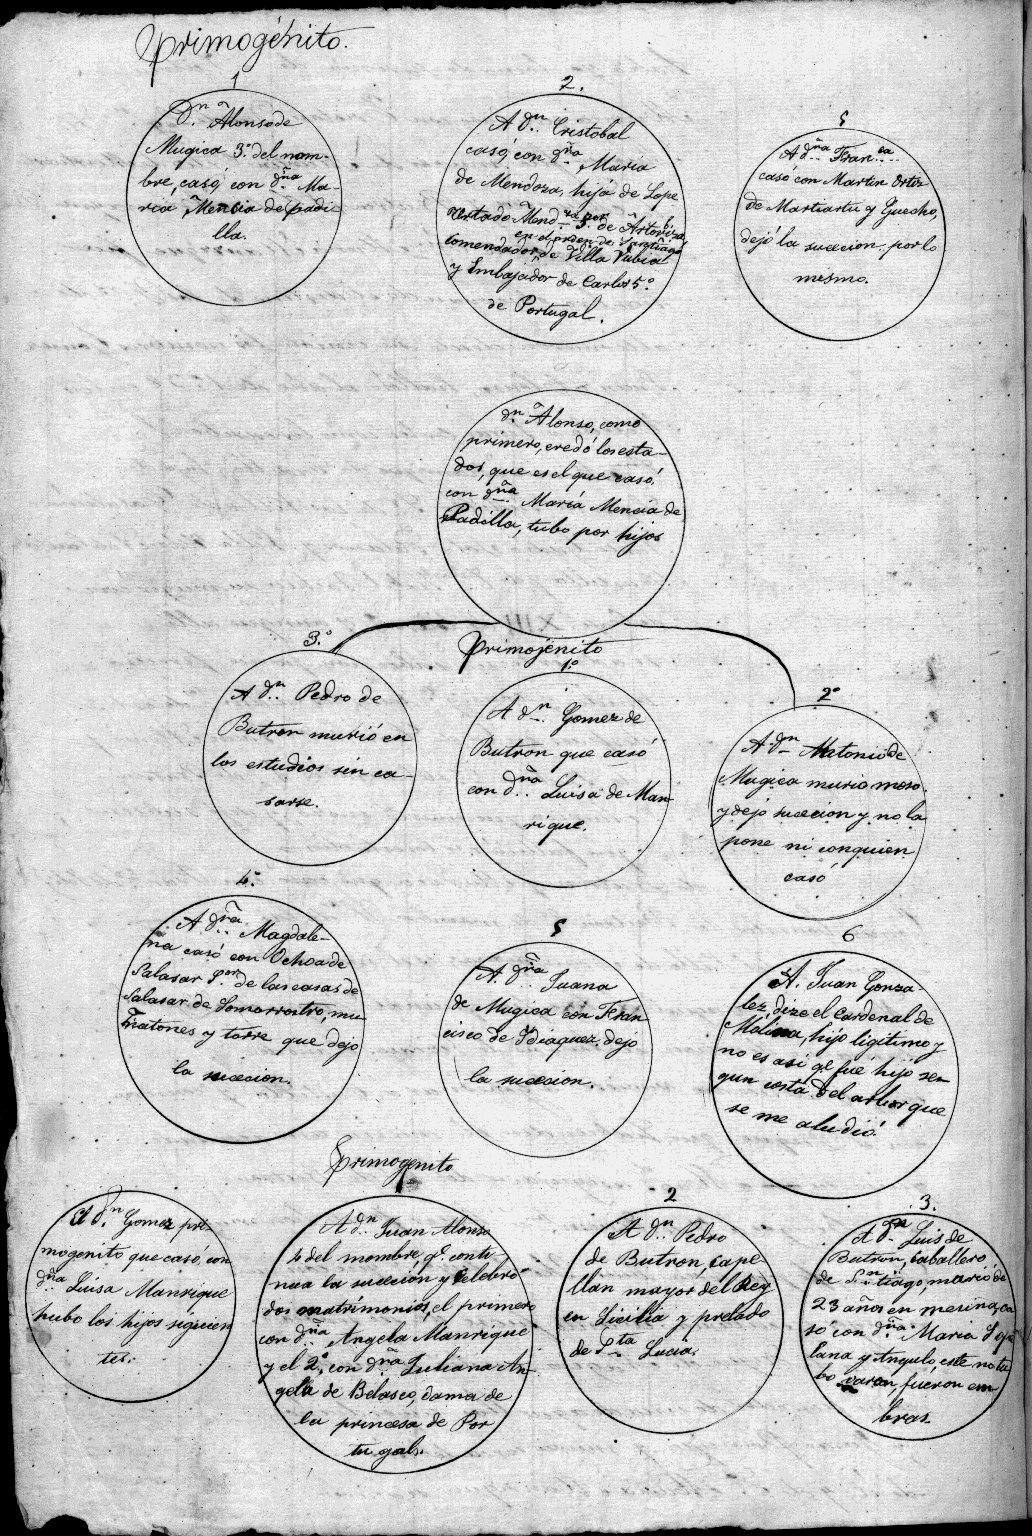 Primogénito.
1
Dn. Alonso de
Mugica 3º. del nom-
bre, casó, con dña. Ma-
ria Mencia de padi-
lla.
2.
A dn. Cristobal
casó, con dña. Maria
de Mendoza, hija de Lope
Urtado Mend.za Sor. de
en el orden de Santiago
Comendador de Villa Rubia
y Embajador de Carlos 5.º
de Portugal.
5
A dña. Fran.ca
casó con Martin Ortiz
de Martiartu y Guecho,
dejó la sucecion, por lo
mismo.
dn. Alonso, como
primero, eredó los esta-
dos, que es el que casó
con dña. María Mencia de
Padilla, tubo por hijos
3.º
A dn. Pedro de
Butron murió en
los estudios sin ca-
sarse.
Primojénito
1.º
A dn. Gomez de
Butron que casó
con dña. Luisa de Man-
rique.
2º
A dn. Antonio de
Mugica murio moso
y dejo sucecion y no la
pone ni con quien
casó
4.
A dña. Magdale-
na casó con Ochoa de
Salasar Sor. de las casas de
Salasar de Somorrostro, mu-
ñatones y torre que dejo
la sucecion.
5
A. dña. Juana
de Mugica con Fran
cisco de Ydiaquez dejo
la sucecion.
6
A. Juan Gonza
lez, dize el Cardenal de
Molina, hijo ligitimo y
no es asi qe fué hijo se-
gun costa del arbor que
se me aludió.
A dn. Gomez pri-
mogenito que casó, con
dña. Luisa Manrique
hubo los hijos siguien
tes.
Primogenito
A dn. Juan Alonso
4 del nombre, q.e conti
nua la suceción y Celebró
dos matrimonios, el primero
con dña. Angela Manrique
y el 2.º con dña. Juliana An-
gela de Belasco, dama de
la princesa de Por
tugal.
2
A dn. Pedro
de Butron, Cape
llan mayor del Rey
en Sicilia y prelado
de S.ta Lucia.
3.
A dn. Luis de
Butron, Caballero
de Sn.tiago, murió de
23 años en mesina, ca
só con dña. Maria
y Angulo, este no tu
bo varon, fueron em
bras.